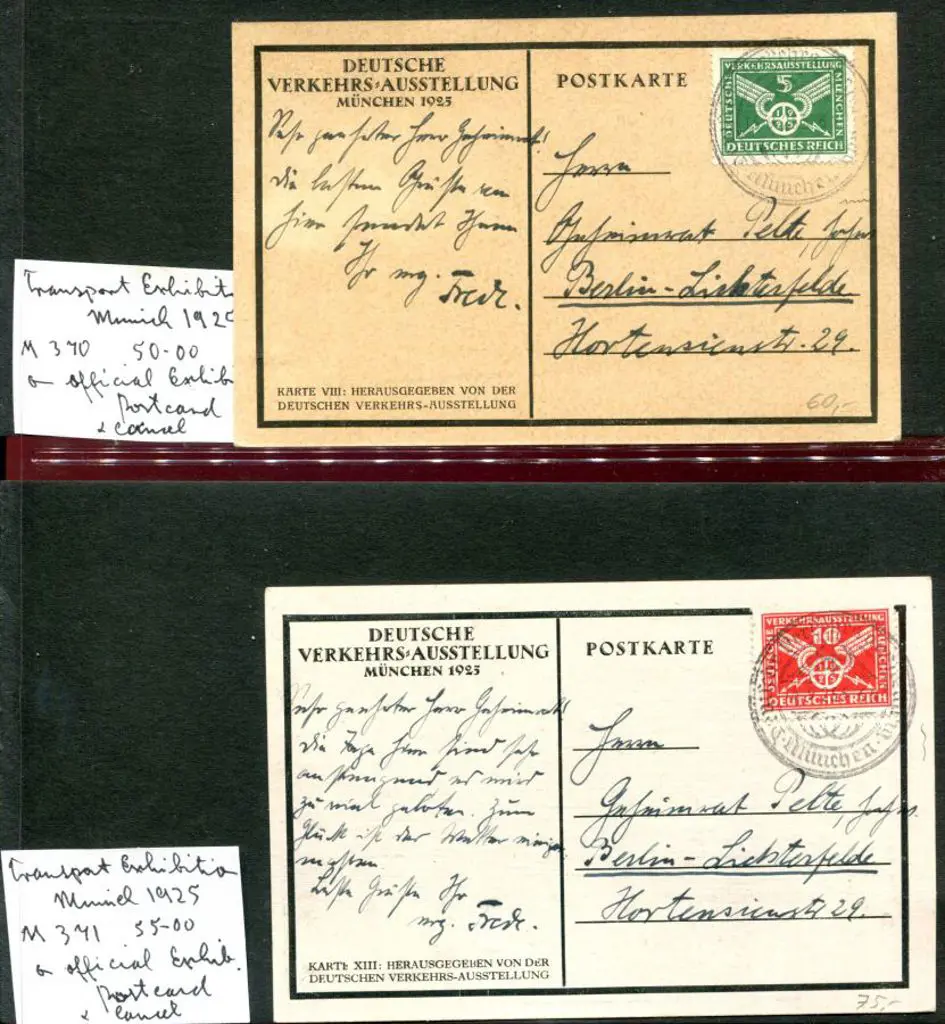 DEUTSCHE
VERKEHRS-AUSSTELLUNG
MÜNCHEN 1925
Sehr geehrter Herr Geheimrat!
die besten Grüße von
hier sendet Ihnen
Ihr erg. Fredr.
KARTE VIII: HERAUSGEGEBEN VON DER
DEUTSCHEN VERKEHRS-AUSSTELLUNG
POSTKARTE
VERKEHRSAUSSTELLUNG
DEUTSCHE
5
MÜNCHEN
1925
DEUTSCHES REICH
München
Herrn
Geheimrat Pelte,
Berlin-Lichterfelde
Hortensienstr. 29.
60,-
Transport Exhibiti
Munich 1925
M 370 50-00
on official Exhib
Postcard
& cancel
DEUTSCHE
VERKEHRS-AUSSTELLUNG
MÜNCHEN 1925
Sehr geehrter Herr Geheimrat!
Die Tage hier sind sehr
anstrengend es wird
zu viel geboten. Zum
Glück ist das Wetter
Beste Grüße Ihr
erg. Fredr.
KARTE XIII: HERAUSGEGEBEN VON DER
DEUTSCHEN VERKEHRS-AUSSTELLUNG
POSTKARTE
VERKEHRSAUSSTELLUNG
DEUTSCHE
10
MÜNCHEN
1925
DEUTSCHES REICH
München
Herrn
Geheimrat Pelte,
Berlin-Lichterfelde
Hortensienstr 29.
75,-
Transport Exhibition
Munich 1925
M 371 55-00
on official Exhib.
Postcard
& cancel